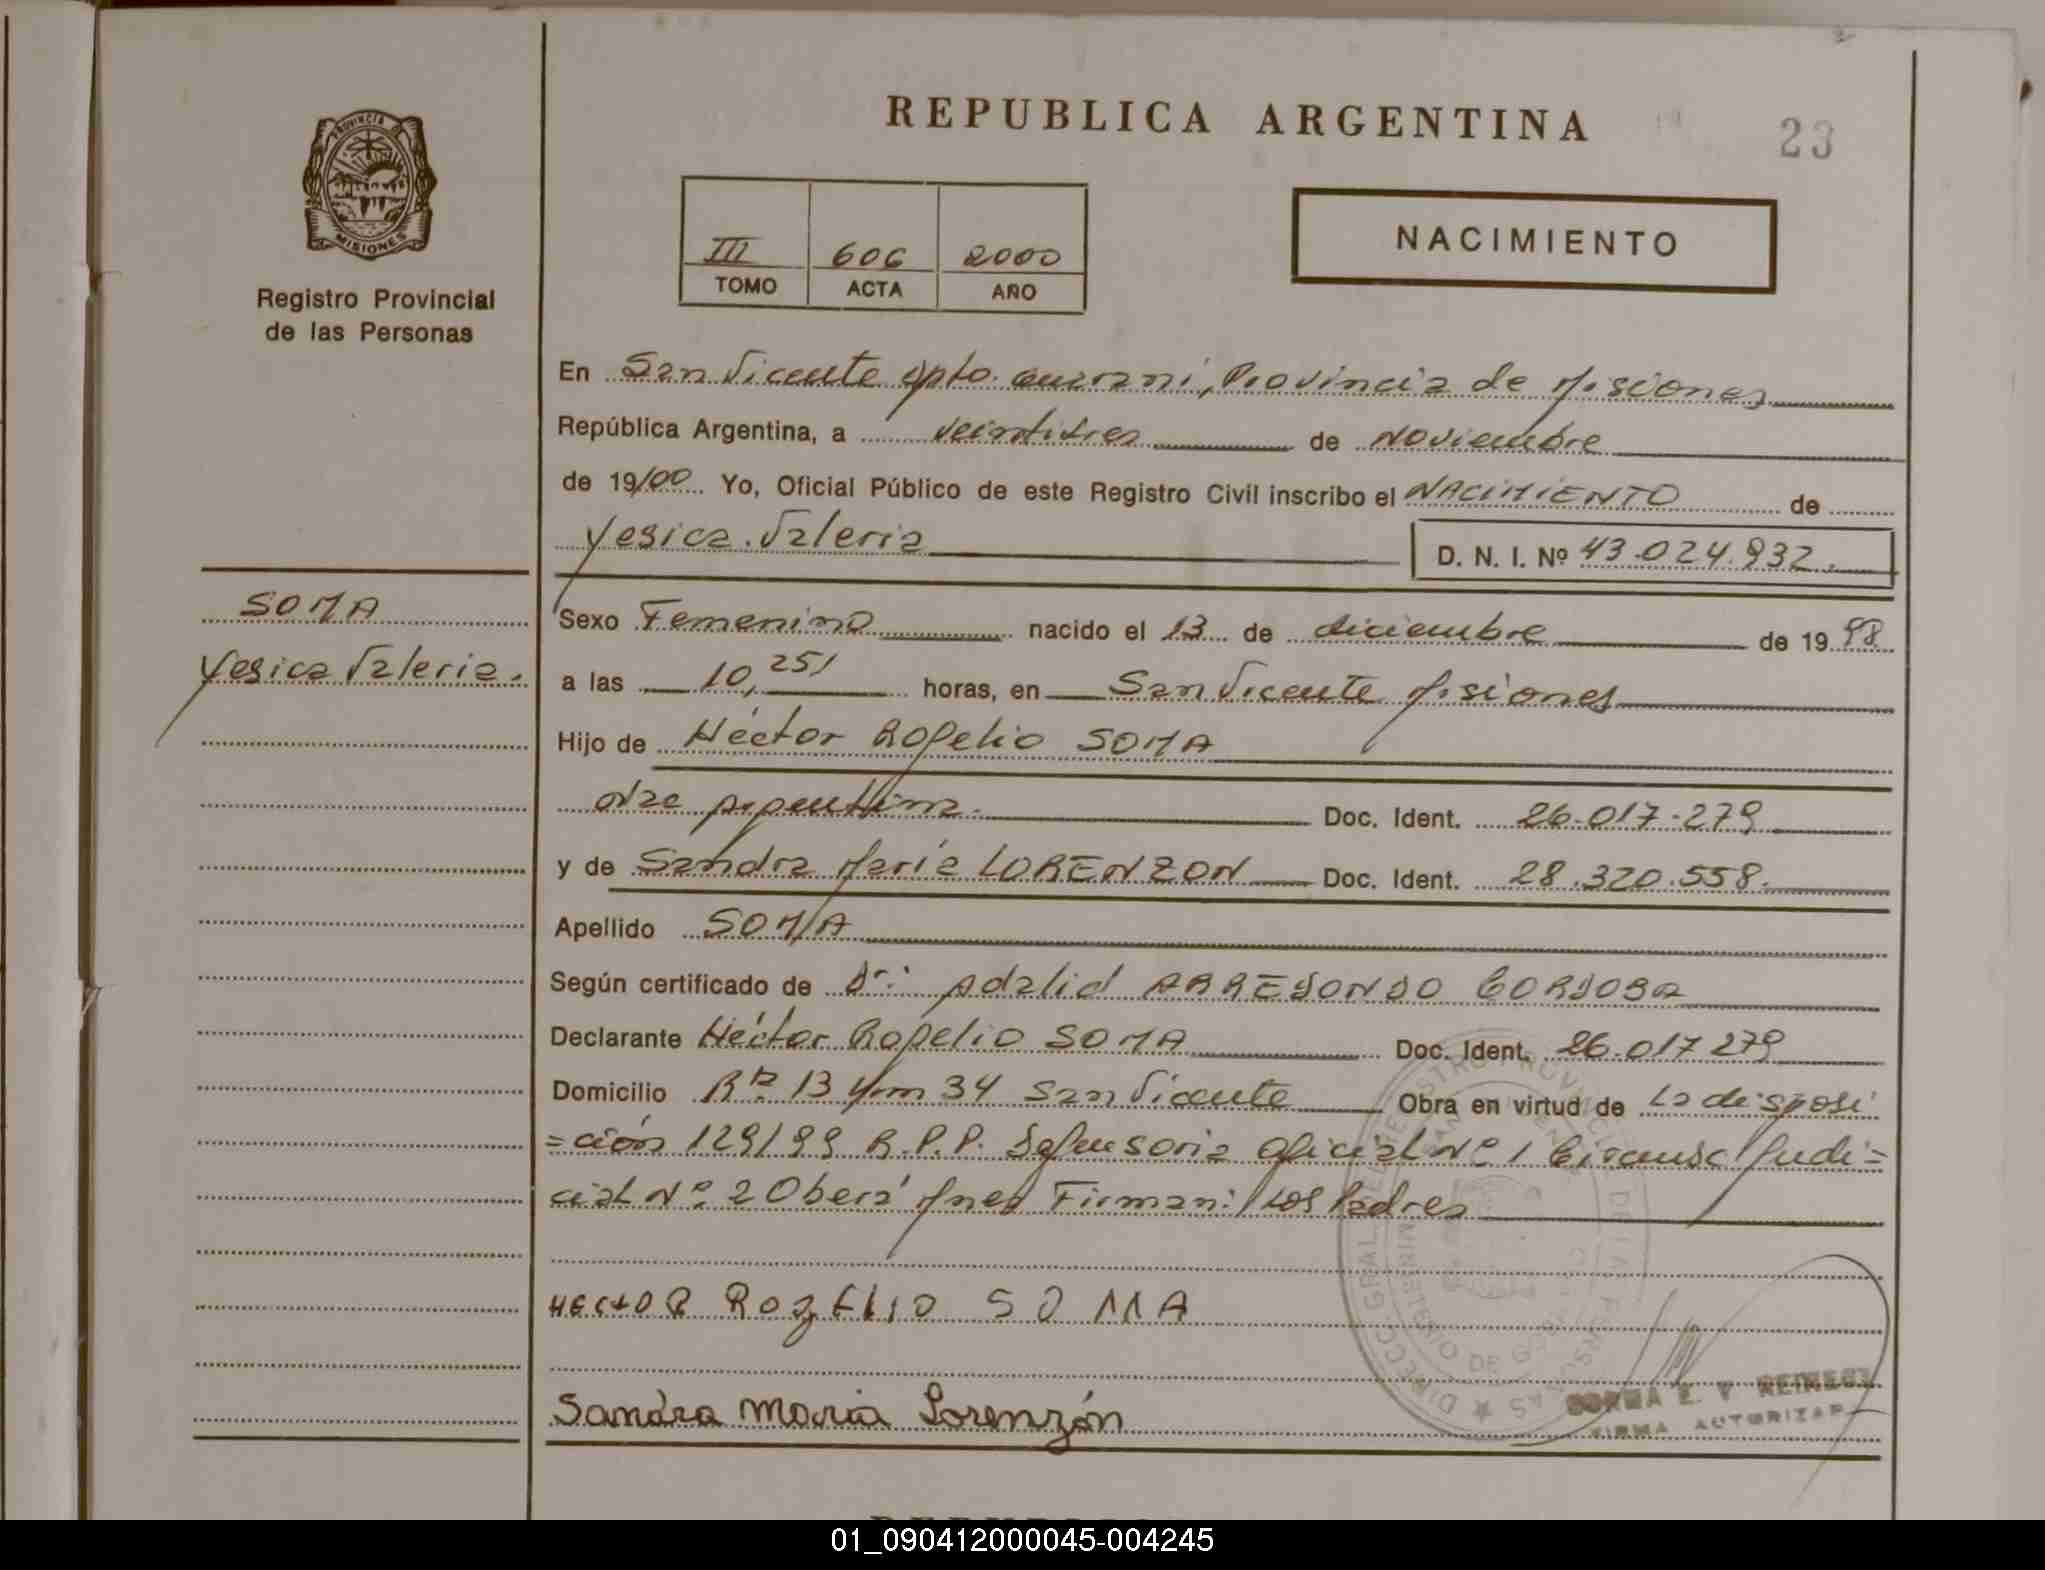 REPUBLICA ARGENTINA
23
PROVINCIA DE
MISIONES
Registro Provincial
de las Personas
III 606 2000
TOMO ACTA AÑO
NACIMIENTO
En San Vicente Dpto. Guarani, Provincia de Misiones
República Argentina, a veintitres de Noviembre
de 19/00 Yo, Oficial Público de este Registro Civil inscribo el NACIMIENTO de
Yesica Valeria
D. N. I. Nº 43.024.932.
SOMA
Yesica Valeria.
Sexo Femenino nacido el 13 de diciembre de 1998
a las 10,25/ horas, en San Vicente Misiones
Hijo de Héctor Rogelio SOMA
Nac Argentina. Doc. Ident. 26.017.279
y de Sandra María LORENZON Doc. Ident. 28.320.558.
Apellido SOMA
Según certificado de Dr. Adalid ARREDONDO CORDOBA
Declarante Héctor Rogelio SOMA Doc. Ident. 26.017 279
Domicilio Rta 13 Km 34 San Vicente Obra en virtud de La disposi
=ción 129/99 R.P.P. Defensoria Oficial Nº 1 Circunsc Judi=
cial Nº 2 Oberá Mnes Firman: Los Padres
HECtOR RogElio SOMA
Sandra Maria Lorenzón
FIRMA AUTORIZADA
REPUBLICA
01_090412000045-004245